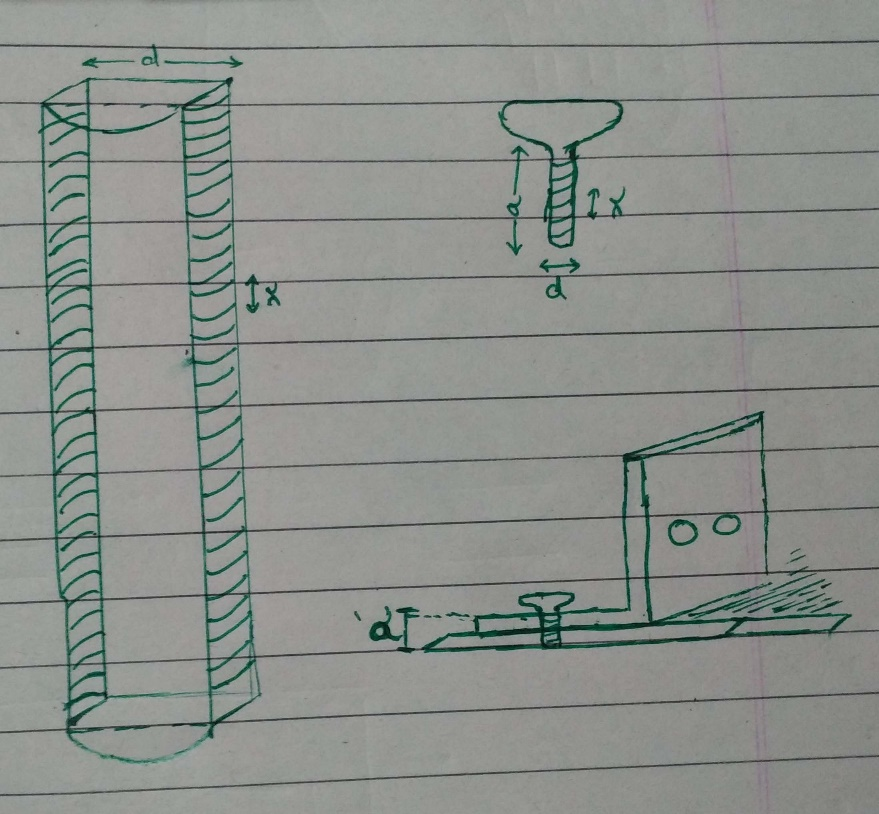 d
x
a
x
d
a